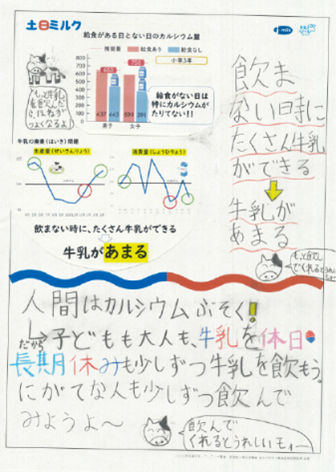 土日ミルク
給食がある日とない日のカルシウム量
推奨量 給食あり 給食なし
小学3年
給食がない日は
特にカルシウムが
たりてない!!
男子 女子
もっと牛乳
を飲んだら
ほねが
つよくなるよ
牛乳の廃棄(はいき)問題
生産量(せいさんりょう)
消費量(しょうひりょう)
飲まない時に、たくさん牛乳ができる
牛乳があまる
飲ま
ない時に
たくさん牛乳
ができる
牛乳が
あまる
人間はカルシウムぶそく!
だから
子どもも大人も、牛乳を休日
長期休みも少しずつ牛乳を飲もう。
にがてな人も少しずつ飲んで
みようよ〜
飲んで
くれるとうれしいモォー